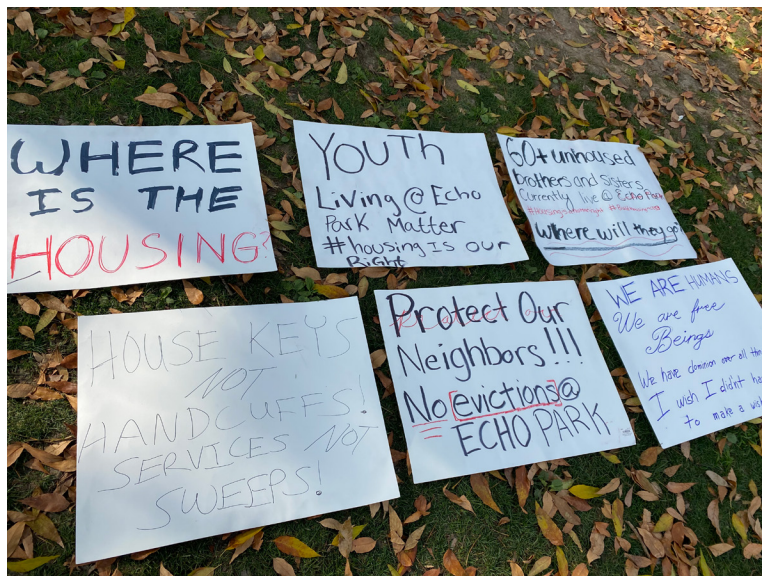 WHERE
IS THE
HOUSING?
YOUTH
Living @ Echo
Park Matter
#housing IS OUR
Right
60+ unhoused
brothers and sisters
Currently live @ Echo Park
Where will they go?
HOUSE KEYS
NOT
HANDCUFFS!
SERVICES NOT
SWEEPS!
Protect Our
Neighbors!!!
No evictions @
ECHO PARK
WE ARE HUMANS
We are free
Beings
We have dominion over all
I wish I didn't
to make a